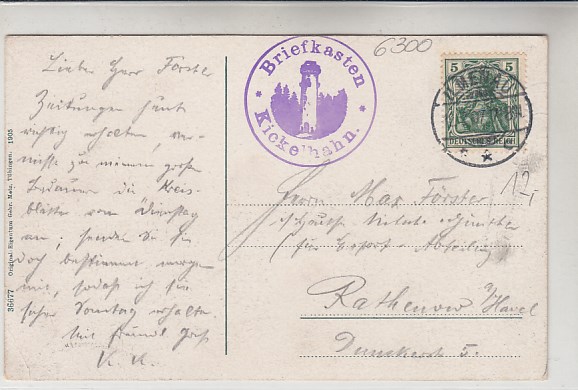 Lieber Herr Förster
Zeitungen heute
richtig erhalten, ver-
misse zu meinem großen
Bedauern die Kreis-
blätter vom Dienstag
an, senden Sie sie
doch bestimmt morgen
mit, sodaß ich sie
sicher Sonntag erhalte.
Mit freundl. Gruß
K. K.
36077 Original-Eigentum Gebr. Metz, Tübingen. 1905
* Briefkasten *
Kickelhahn.
6300
5 5
ILMENAU
DEUTSCHES REICH
12-
Herrn Max Förster
(für Export-Abteilung)
Rathenow a/Havel
5.